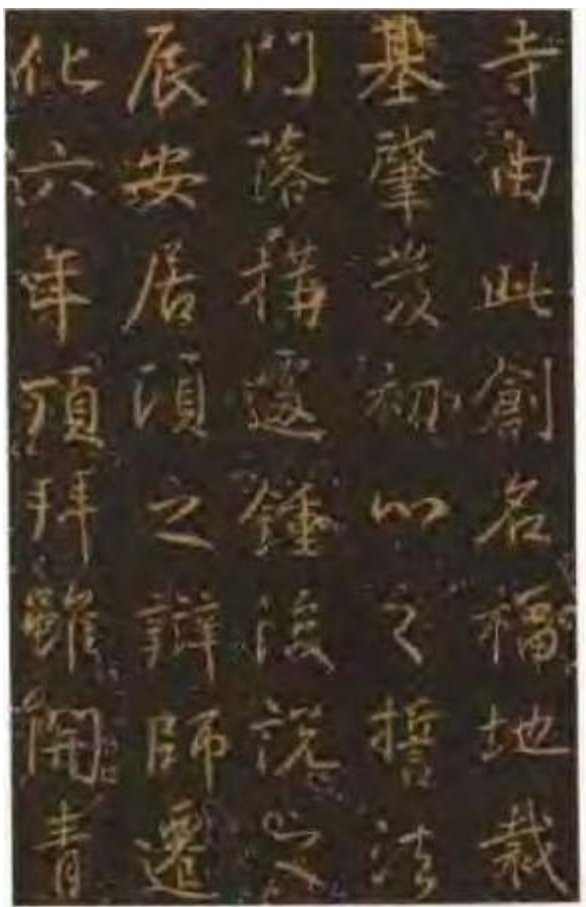 寺酒此創名福地裁
基肇發初以之誓法
門落構邊鍾後說文
辰安居須之辯師遷
化六年頂拜雖開青